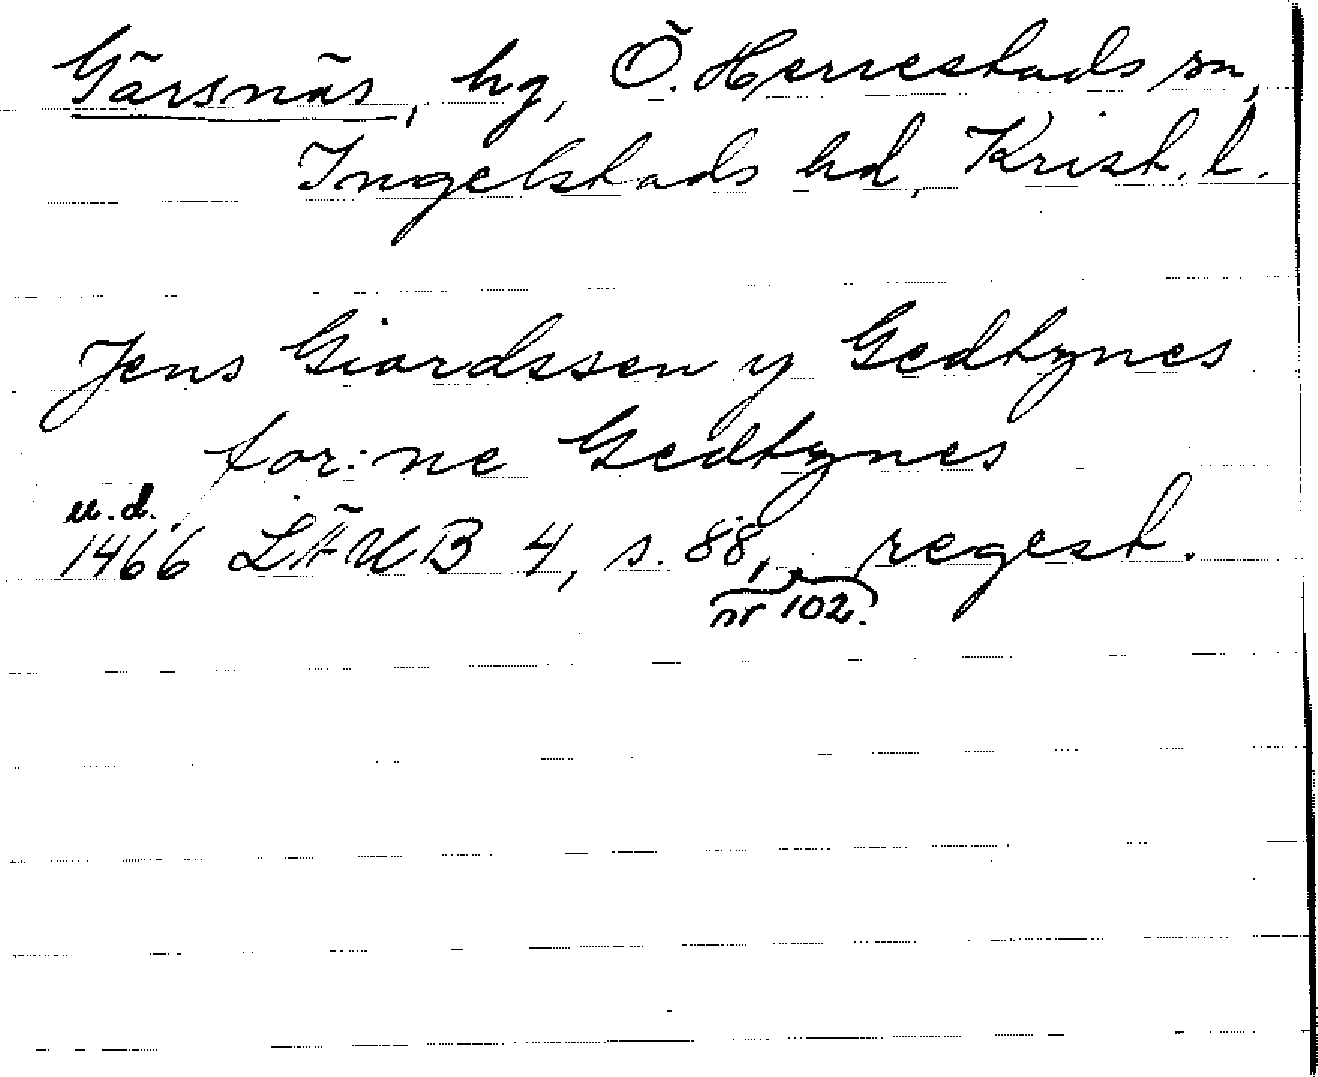 Gärsnäs, hg, Ö. Herrestads sn,
Ingelstads hd, Krist. l.
Jens Giordssen y Gedtynes
for:ne Gedtynes
u.d.
1466 LÄUB 4, s. 88, regest.
nr 102.